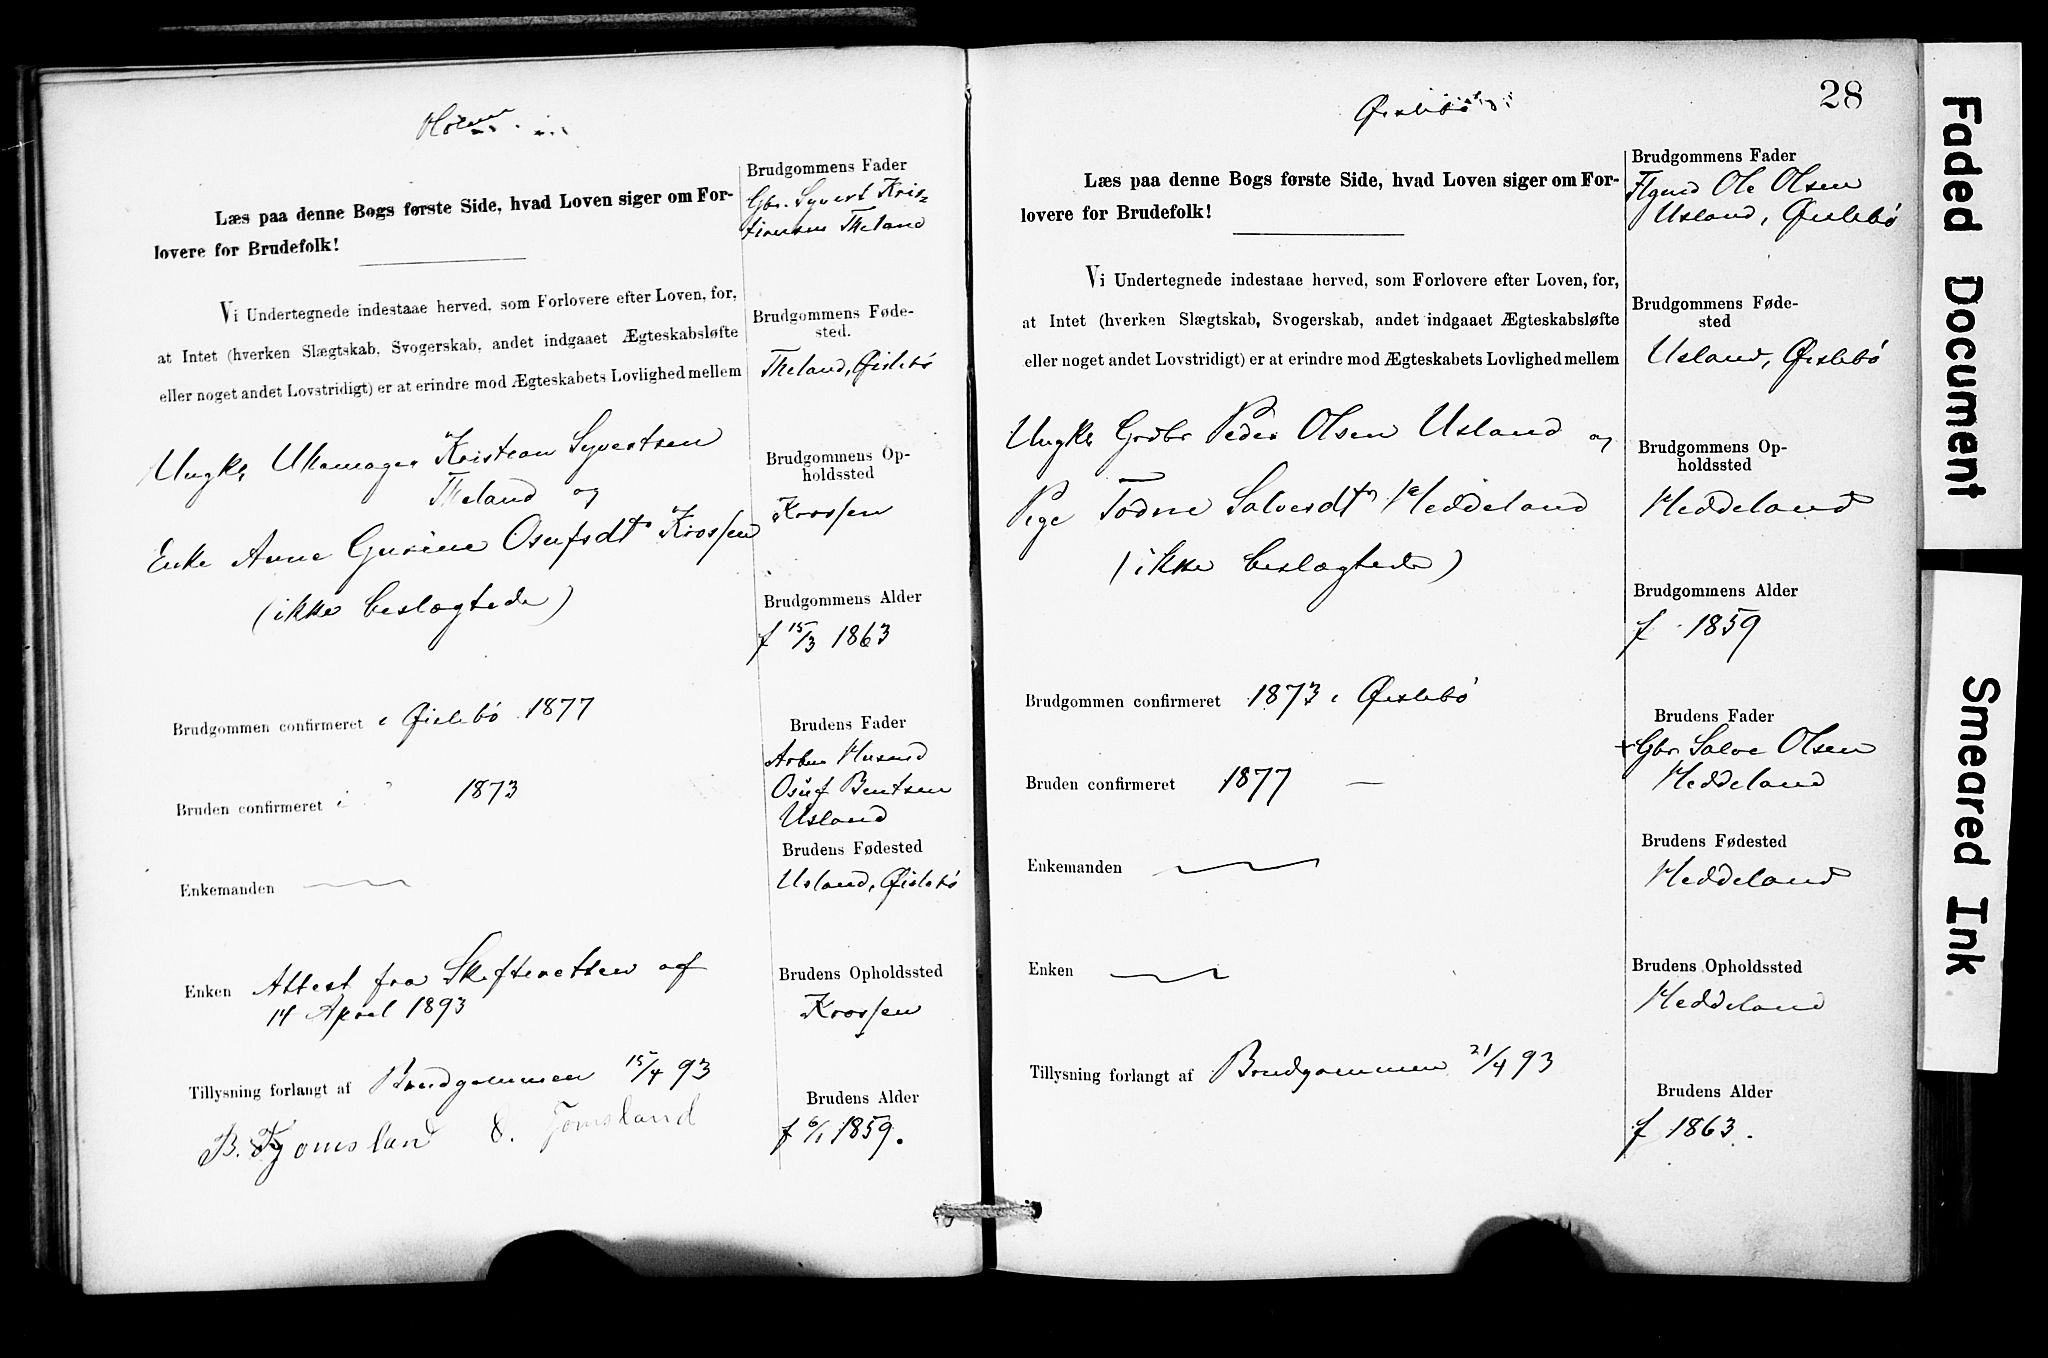 Læs paa denne Bogs første Side, hvad Loven siger om For-
lovere for Brudefolk!
Vi Undertegnede indestaae herved, som Forlovere efter Loven, for,
at Intet (hverken Slægtskab, Svogerskab, andet indgaaet Ægteskabsløfte
eller noget andet Lovstridigt) er at erindre mod Ægteskabets Lovlighed mellem
Ungk. Urmager Kristian Syvertsen
Theland og
Enke Anne Gurine Osufsdtr Krossen
(ikke beslægtede)
Brudgommen confirmeret i Øislebø 1877
Bruden confirmeret i " 1873
Enkemanden
Enken Attest fra Skifteretten af
14 April 1893
Tillysning forlangt af Brudgommen 15/4 93
B. Tjomsland O. Tomsland
Brudgommens Fader
Gbr. Syvert Kris-
tiansen Theland
Brudgommens Føde-
sted.
Theland, Øislebø
Brudgommens Op-
holdssted
Krossen
Brudgommens Alder
f 15/3 1863
Brudens Fader
Arb. Husmd
Osuf Bentsen
Usland
Brudens Fødested
Usland, Øislebø
Brudens Opholdssted
Krossen
Brudens Alder
f 6/1 1859.
Øislebø
28
Læs paa denne Bogs første Side, hvad Loven siger om For-
lovere for Brudefolk!
Vi Undertegnede indestaae herved, som Forlovere efter Loven, for,
at Intet (hverken Slægtskab, Svogerskab, andet indgaaet Ægteskabsløfte
eller noget andet Lovstridigt) er at erindre mod Ægteskabets Lovlighed mellem
Ungk. Grdbr Peder Olsen Usland og
Pige Todne Salvesdtr Heddeland
(ikke beslægtede)
Brudgommen confirmeret 1873 i Øislebø
Bruden confirmeret 1877 —
Enkemanden
Enken
Tillysning forlangt af Brudgommen 21/4 93
Brudgommens Fader
Ole Olsen
Usland, Øislebø
Brudgommens Føde-
sted
Usland, Øislebø
Brudgommens Op-
holdssted
Heddeland
Brudgommens Alder
f 1859
Brudens Fader
+ Gbr Salve Olsen
Heddeland
Brudens Fødested
Heddeland
Brudens Opholdssted
Heddeland
Brudens Alder
f 1863.
Faded Document
Smeared Ink